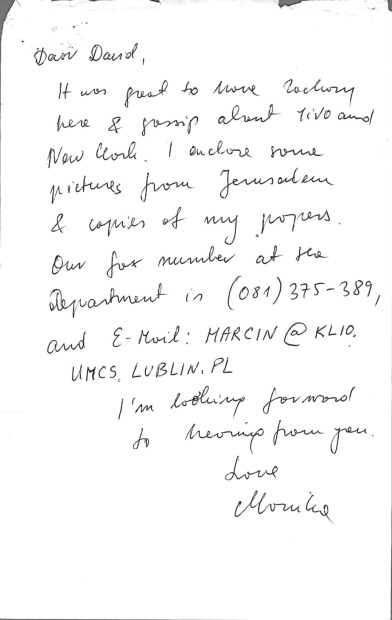 Dear David,
It was great to have Zachary
here & gossip about YIVO and
New York. I enclose some
pictures from Jerusalem
& copies of my papers.
Our fax number at the
Department is (081) 375-389,
and E-Mail: MARCIN @ KLIO.
UMCS. LUBLIN. PL
I'm looking forward
to hearing from you.
Love
Monika